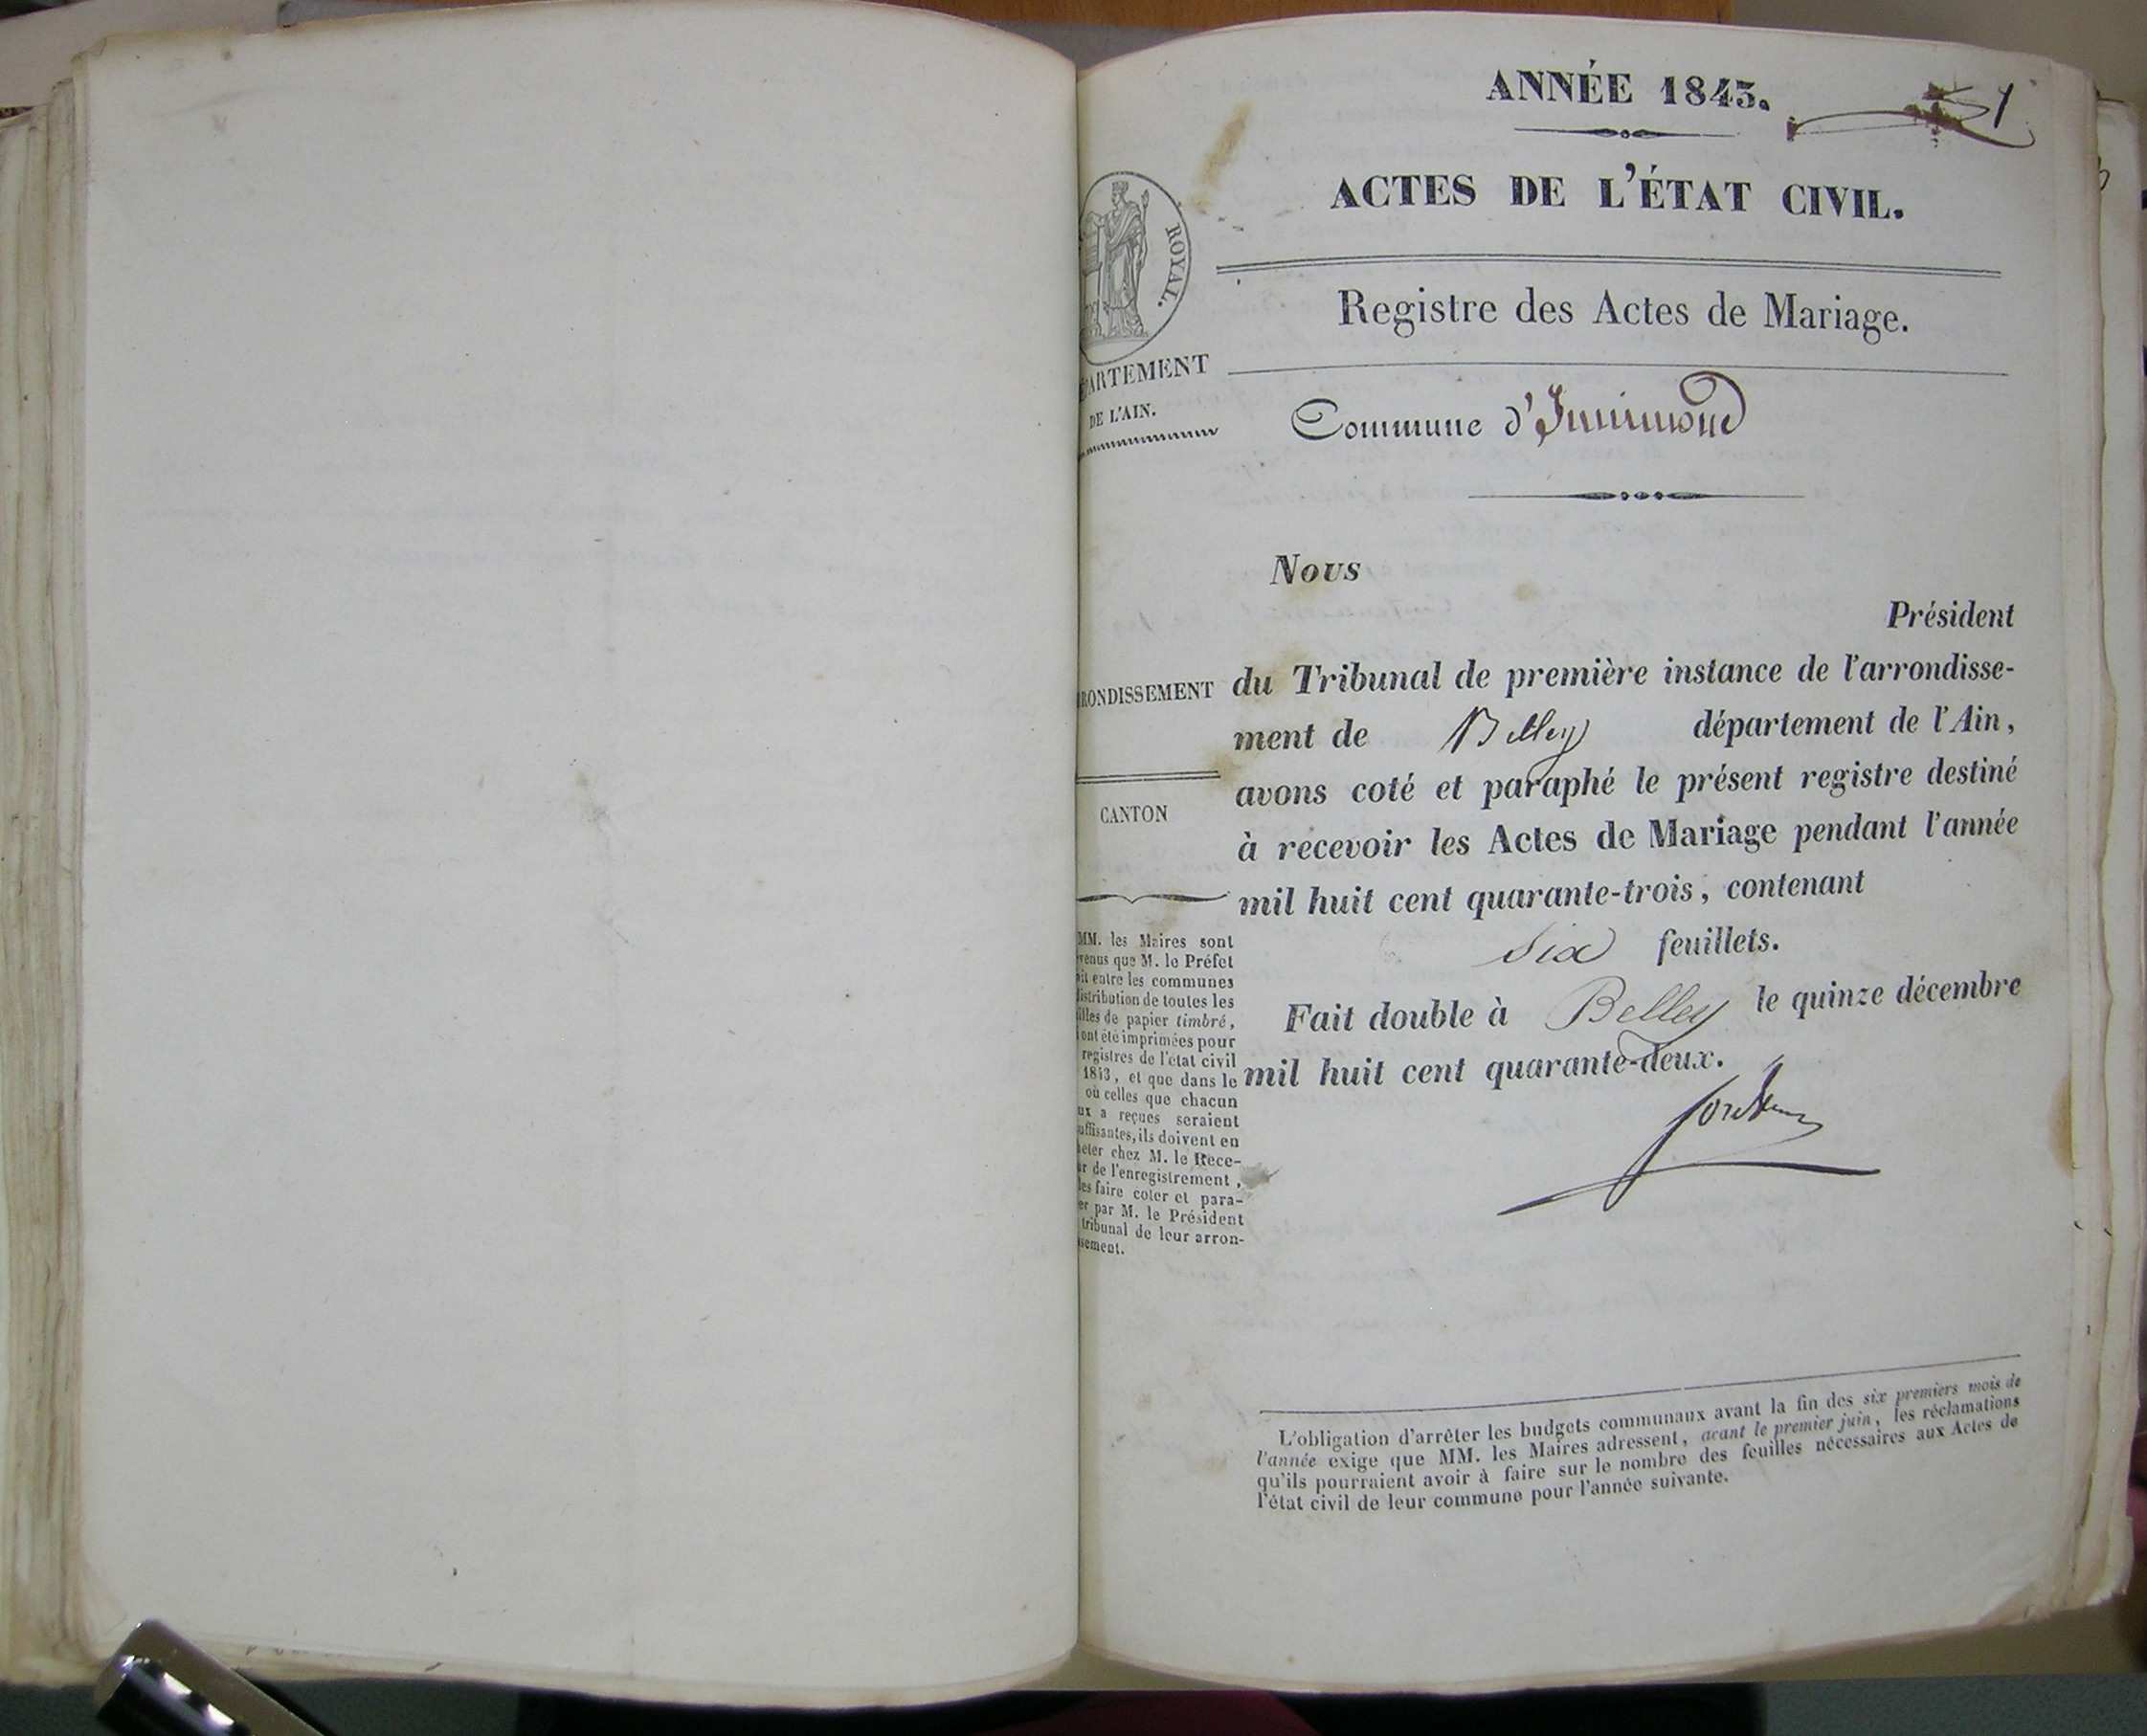 ANNÉE 1843.
1
ACTES DE L'ÉTAT CIVIL.
ROYAL.
Registre des Actes de Mariage.
ÉPARTEMENT
DE L'AIN.
Commune d'Innimond
Nous
Président
RONDISSEMENT
du Tribunal de première instance de l'arrondisse-
ment de Belley département de l'Ain,
avons coté et paraphé le présent registre destiné
CANTON
à recevoir les Actes de Mariage pendant l'année
mil huit cent quarante-trois, contenant
six feuillets.
Fait double à Belley le quinze décembre
mil huit cent quarante-deux.
MM. les Maires sont
venus que M. le Préfet
it entre les communes
distribution de toutes les
illes de papier timbré,
i ont été imprimées pour
registres de l'état civil
1843, et que dans le
où celles que chacun
ux a reçues seraient
uffisantes, ils doivent en
heter chez M. le Rece-
ur de l'enregistrement,
les faire coter et para-
er par M. le Président
tribunal de leur arron-
ssement.
L'obligation d'arrêter les budgets communaux avant la fin des six premiers mois de
l'année exige que MM. les Maires adressent, avant le premier juin, les réclamations
qu'ils pourraient avoir à faire sur le nombre des feuilles nécessaires aux Actes de
l'état civil de leur commune pour l'année suivante.